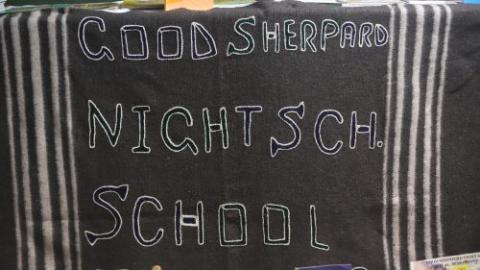 GOOD SHERPARD
NIGHTSCH.
SCHOOL